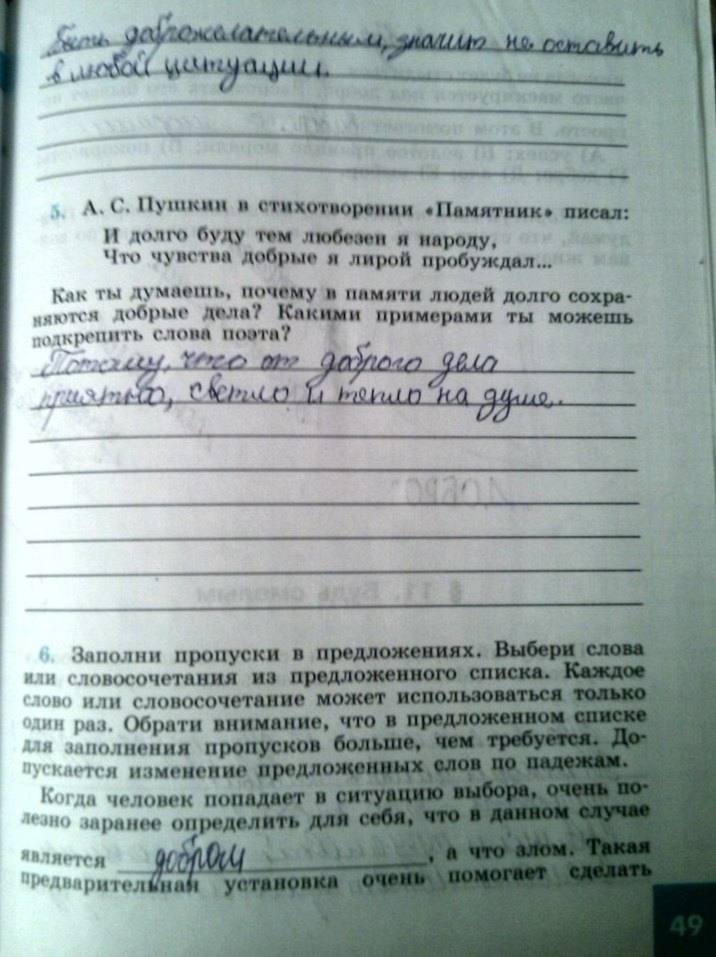 Быть доброжелательным, значит не оставить
в любой цитуации.
5. А. С. Пушкин в стихотворении «Памятник» писал:
И долго буду тем любезен я народу,
Что чувства добрые я лирой пробуждал...
Как ты думаешь, почему в памяти людей долго сохра-
няются добрые дела? Какими примерами ты можешь
подкрепить слова поэта?
Потому, что от доброго дела
приятно, светло и тепло на душе.
§ 11. Будь смелым
6. Заполни пропуски в предложениях. Выбери слова
или словосочетания из предложенного списка. Каждое
слово или словосочетание может использоваться только
один раз. Обрати внимание, что в предложенном списке
для заполнения пропусков больше, чем требуется. До-
пускается изменение предложенных слов по падежам.
Когда человек попадает в ситуацию выбора, очень по-
лезно заранее определить для себя, что в данном случае
является добром, а что злом. Такая
предварительная установка очень помогает сделать
49